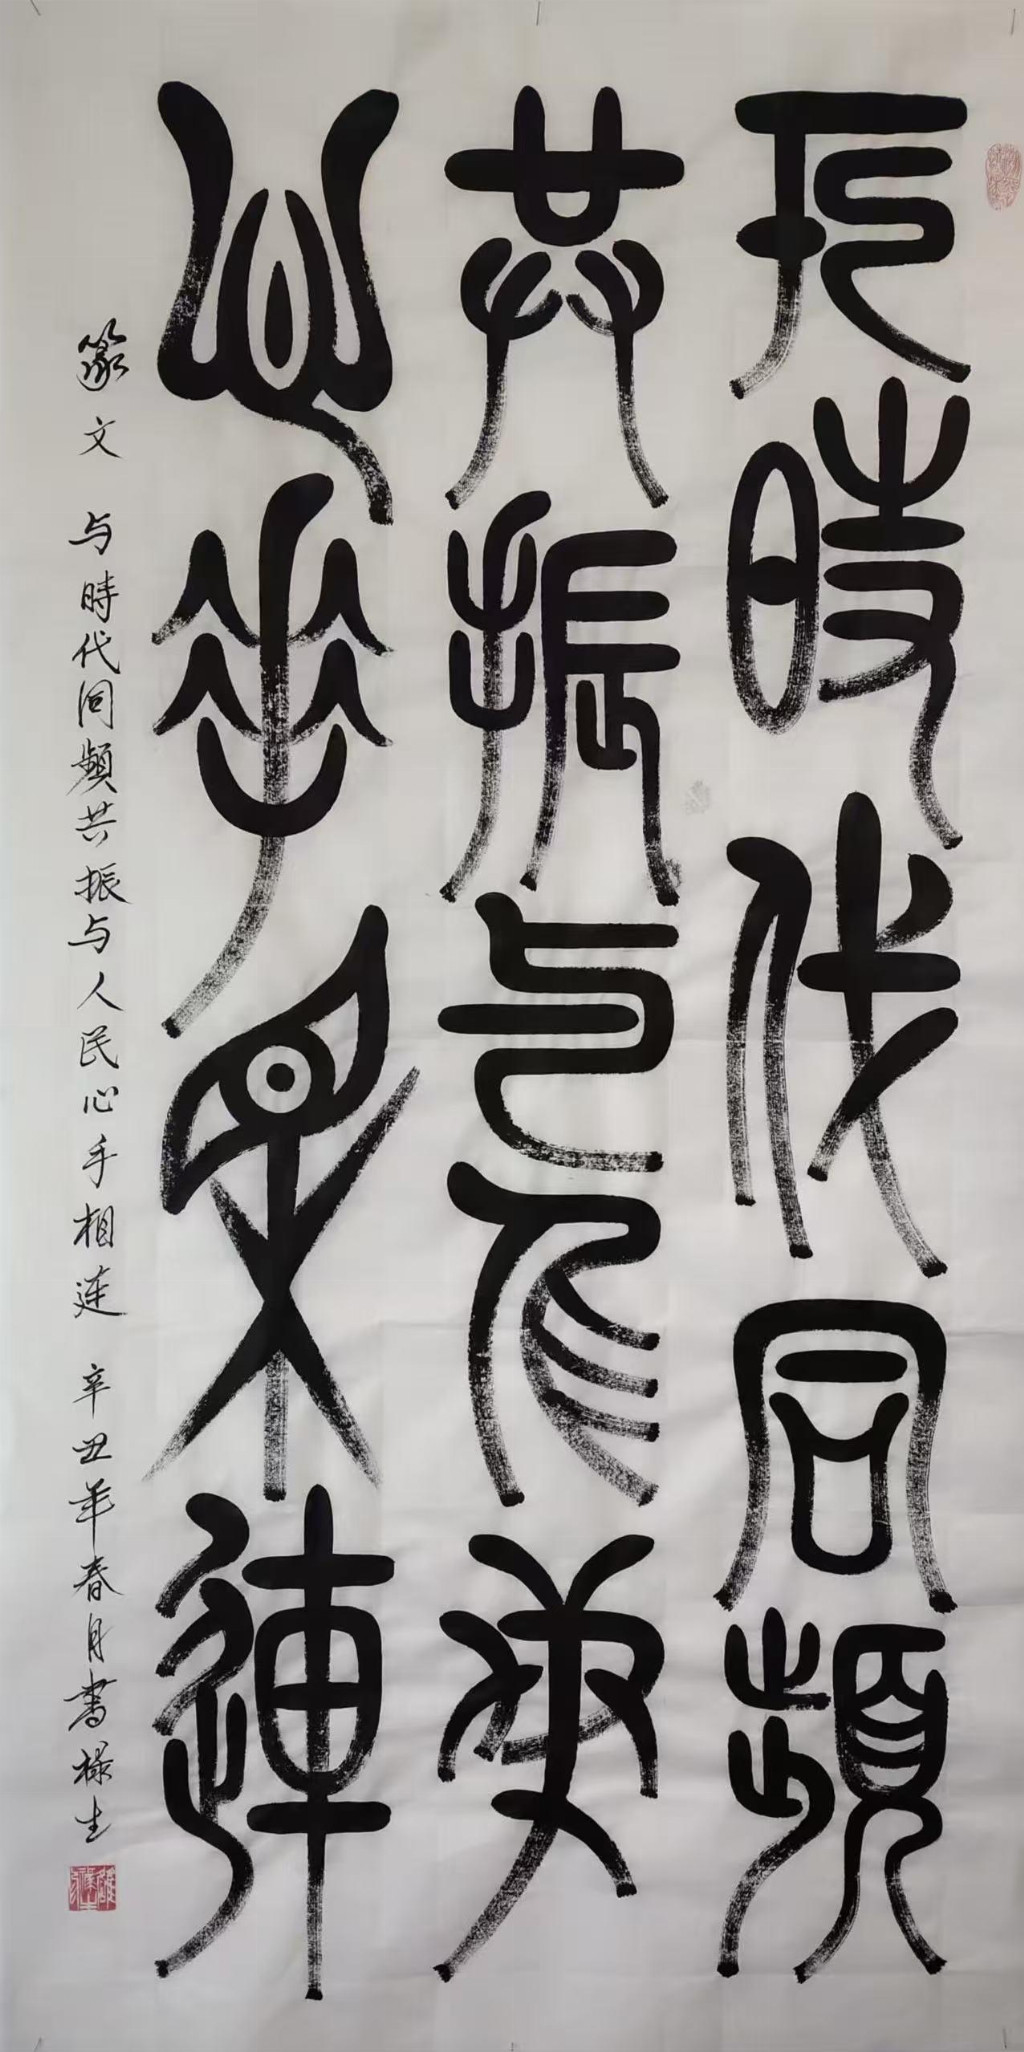 与時代同頻
共振与人民
心手相連
篆文 与時代同頻共振与人民心手相连 辛丑年春月書禄生